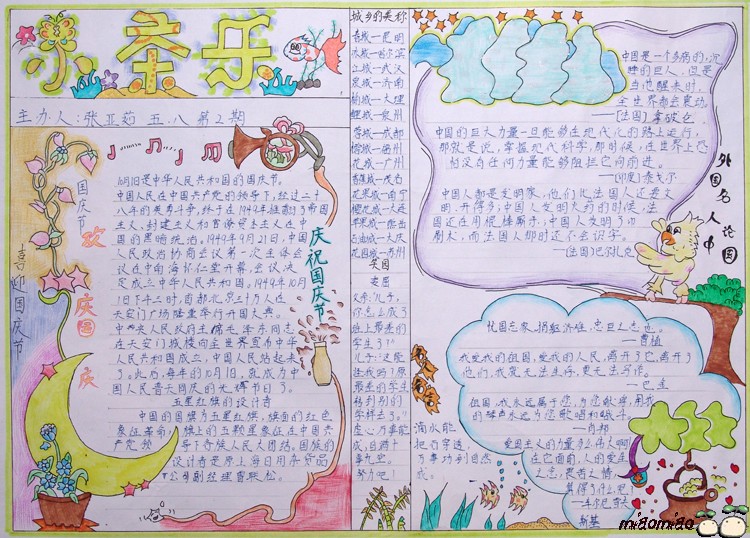 乐
主办人:张亚茹 五.八 第2期
国庆节
欢
庆国
庆
喜迎国庆节
10月1日是中华人民共和国的国庆节。
中国人民在中国共产党的领导下,经过二十
八年的英勇斗争,终于在1949年推翻了帝国
主义,封建主义和官僚资本主义在中
国的黑暗统治。1949年9月21日,中国
人民政治协商会议第一次全体会
议在中南海怀仁堂开幕,会议决
定成立中华人民共和国,1949年10月
1日下午三时,首都北京三十万人在
天安门广场隆重举行开国大典。
中央人民政府主席毛泽东同志
在天安门城楼向全世界宣布中华
人民共和国成立,中国人民站起来
了。此后,每年的10月1日,就成为中
国人民普天同庆的光辉节日了。
五星红旗的设计者
中国的国旗为五星红旗,旗面的红色
象征革命,旗上的五颗星象征在中国共
产党领导下各族人民大团结。国旗的
设计者是原上海日用杂货品
公司副经理曾联松。
庆祝国庆节
城乡的美称
春城—昆明
冰城—哈尔滨
江城—武汉
泉城—济南
蓉城—成都
榕城—福州
花城—广州
石油城—大庆
花园城—苏州
笑园
卖蛋
父亲:"儿子,
你怎么成了
班上最差的
学生了?"
滴水能
把石穿透,
万事功到自然
成。
努力吧!
中国是一个多病的,沉
睡的巨人,但是
当他醒来时,
全世界都会震动。
——(法国)拿破仑
中国的巨大力量一旦能够在现代化的路上运行,
那就是说,掌握现代科学,那时候,在世界上恐
怕没有任何力量能够阻拦它向前进。
——(印度)泰戈尔
中国人都是发明家,他们比法国人还要文
明,开得多,中国人发明火药的时候,法
国还在用棍棒厮杀;中国人发明了印
刷术,而法国人那时还不会识字。
——(法国)巴尔扎克
外国名人论中国
忧国忘家,捐躯济难,忠臣之志也。
——曹植
我爱我的祖国,爱我的人民,离开了它,离开了
他们,我就无法生存,更无法写作。
——巴金
祖国,我永远属于您,为您歌唱,用我
的琴声永远为您歌唱和战斗。
——肖邦
爱国主义的力量多么伟大啊!
在它面前,人的爱生
之念,畏苦之情,
算得了什么呢!
——车尔尼雪夫
斯基
miaomiao